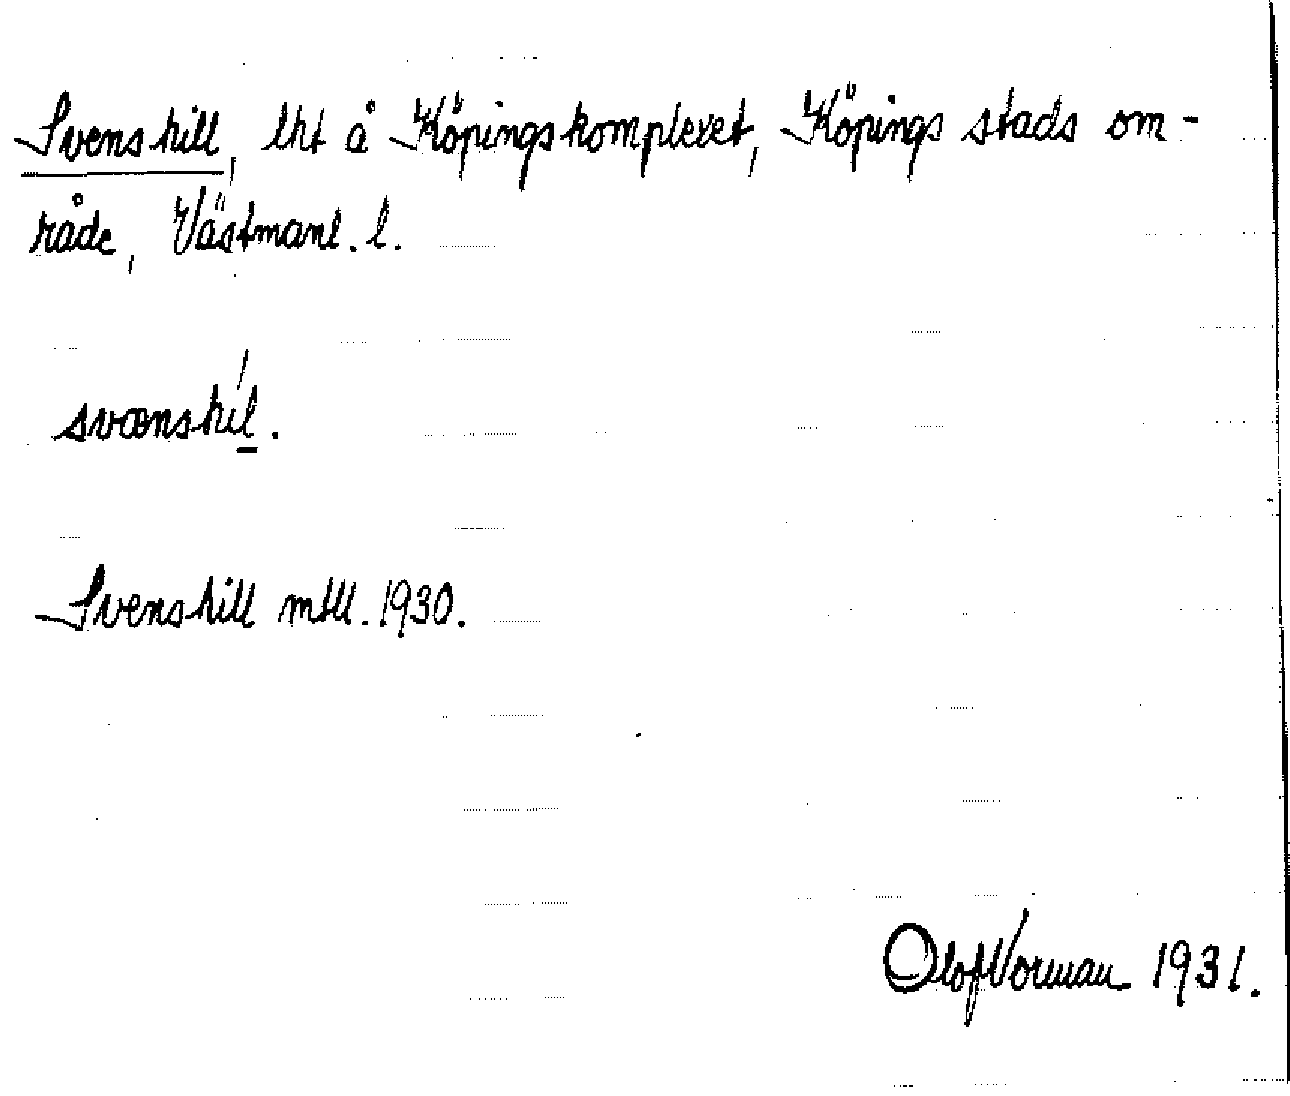 Svenshill, lht å Köpingskomplexet, Köpings stads om-
råde, Västmanl. l.
svænshíl.
Svenshill mtll. 1930.
Olof Norman 1931.